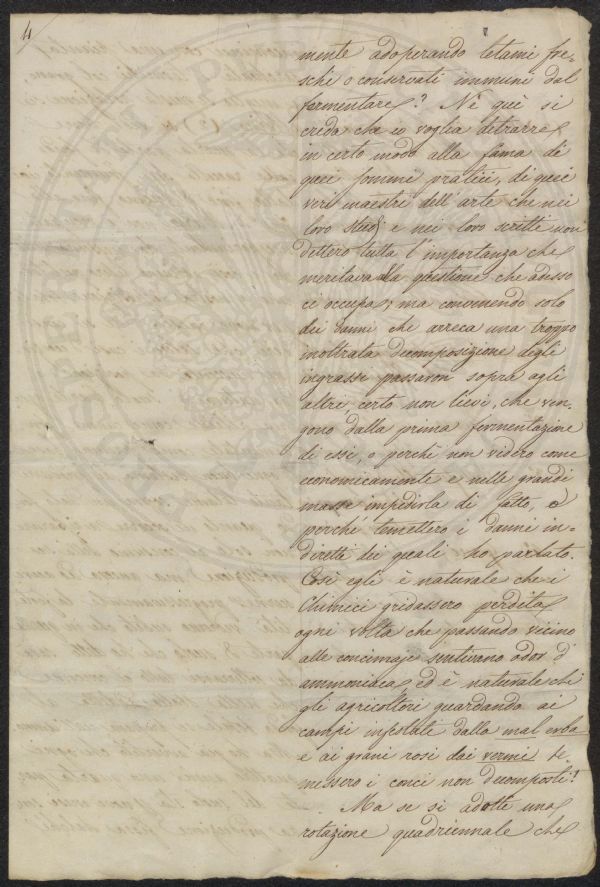 4
mente adoperando letami fre-
schi o conservati immuni dal
fermentare? Nè quì si
creda che io voglia detrarre
in certo modo alla fama di
quei sommi pratici, di quei
veri maestri dell'arte che nei
loro studj e nei loro scritti non
dettero tutta l'importanza che
meritava la questione che adesso
ci occupa; ma convenendo solo
dei danni che arreca una troppo
inoltrata decomposizione degli
ingrassi passaron sopra agli
altri, certo non lievi, che ven-
gono dalla prima fermentazione
di essi, o perchè non videro come
economicamente e nelle grandi
masse impedirla di fatto, o
perchè temettero i danni in-
diretti dei quali ho parlato.
Così egli è naturale che i
Chimici gridassero perdita
ogni volta che passando vicino
alle concimaje sentivano odor d'
ammoniaca, ed è naturale che
gli agricoltori guardando ai
campi infestati dalla mal erba
e ai grani rosi dai vermi te-
messero i conci non decomposti?
Ma se si adotti una
rotazione quadriennale che